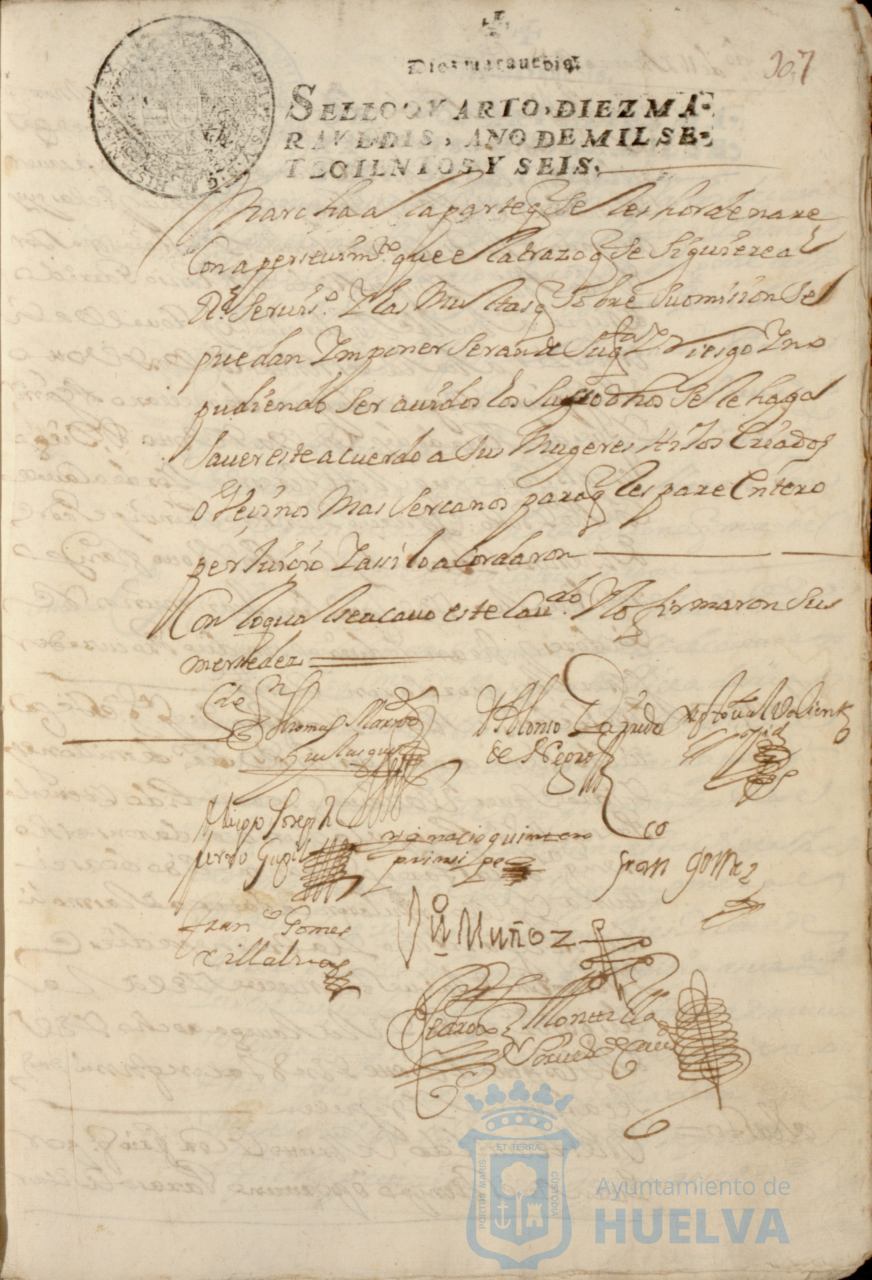 307
Diez maravedis
SELLO QVARTO, DIEZ MA-
RAVEDIS, AÑO DE MIL SE-
TECIENTOS Y SEIS.
Marcha a la parte q se les hordenare
Con apersevim.to que el atrazo q se siguiere a
R.l servis.o Y las Multas q sobre su omision se
puedan Ymponer seran de su q.ta Y Riesgo Y no
pudiendo ser avidos los susodhos se le haga
saver este acuerdo a sus Mugeres Hijos Criados
o Vesinos Mas sercanos para q les pare Entero
perjuisio Y asi lo acordaron
Con lo qual se acavo este Cav.do Y lo firmaron sus
mersedes
Thomas
D Alonso
de Negro
Valiente
Diego Joseph
ygnacio quintero
prinsipe
fran gomez
Fran.co Gomes
Villalva
Ju Muñoz
Montilla
PORTUS MARIS ET TERRAE CUSTODIA
Ayuntamiento de
HUELVA